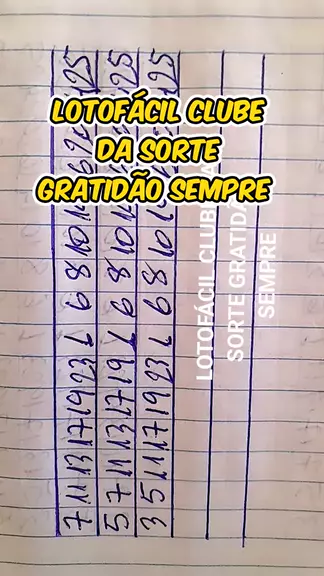 LOTOFÁCIL CLUBE
DA SORTE
GRATIDÃO SEMPRE
7 11 13 17 19 23 1 6 8 10 25
5 7 11 13 17 19 1 6 8 10 25
3 5 11 17 19 23 1 6 8 10 25
LOTOFÁCIL CLUBE
SORTE GRATID
SEMPRE